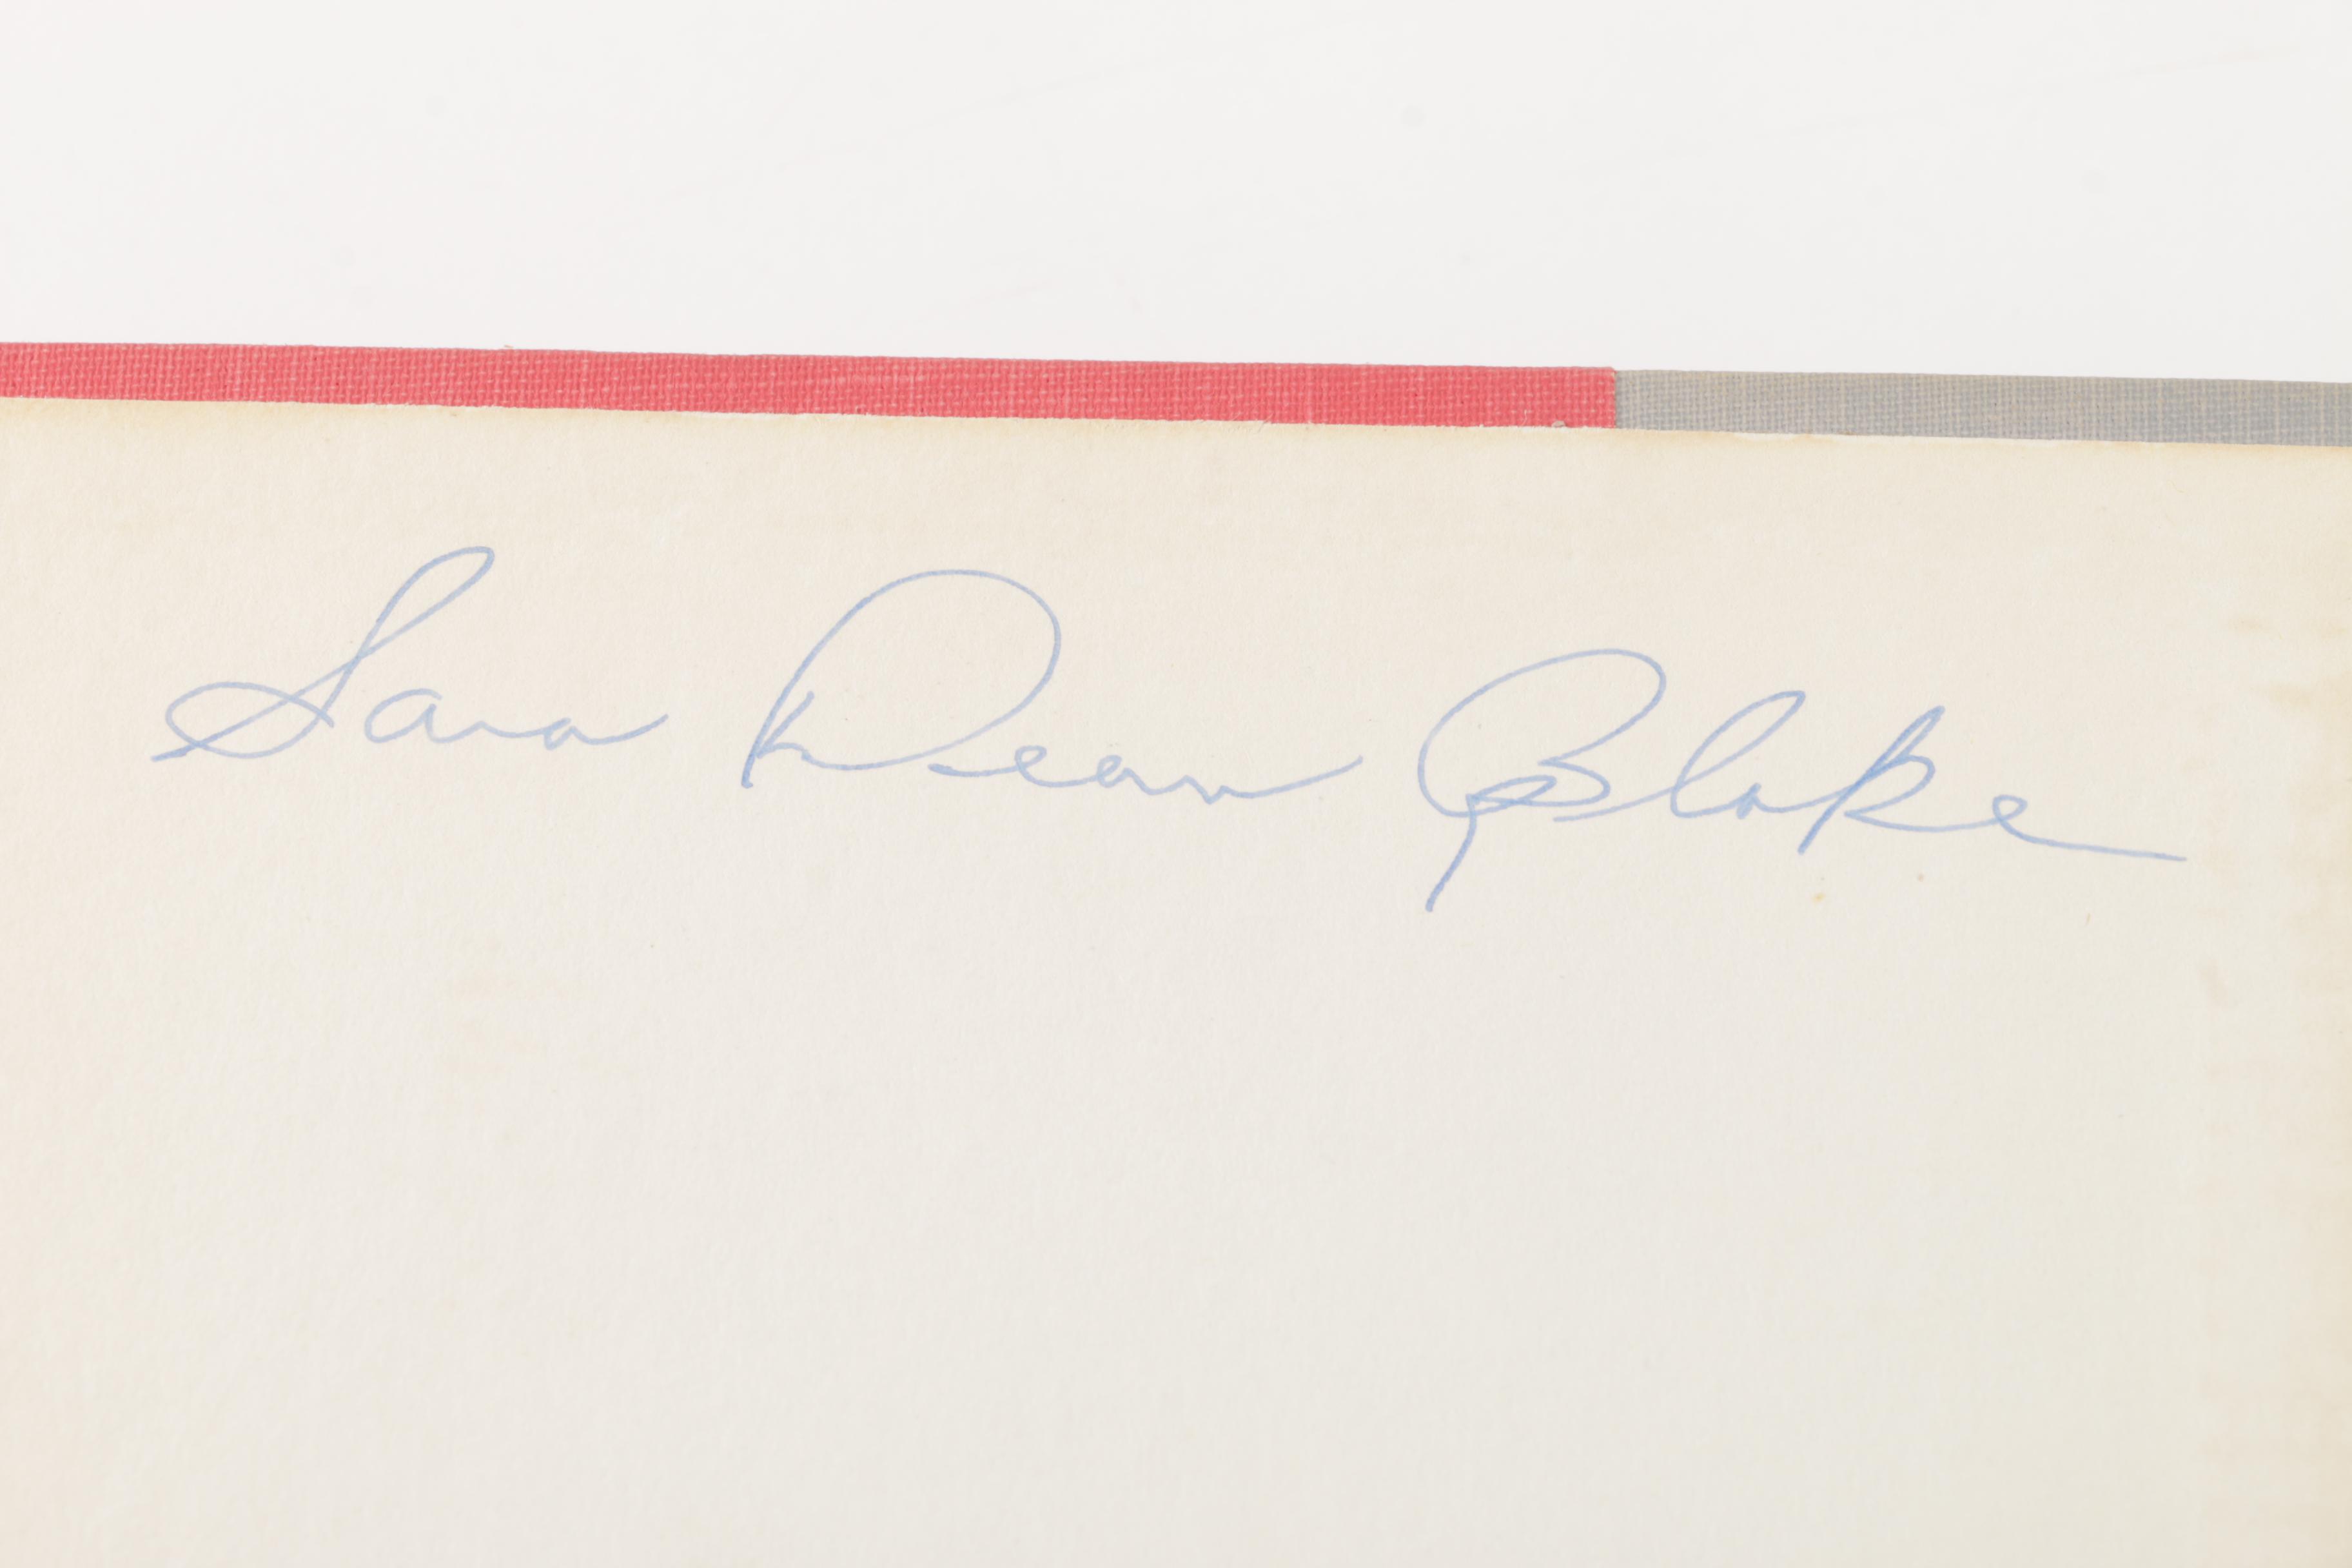 Sara Dean Blake